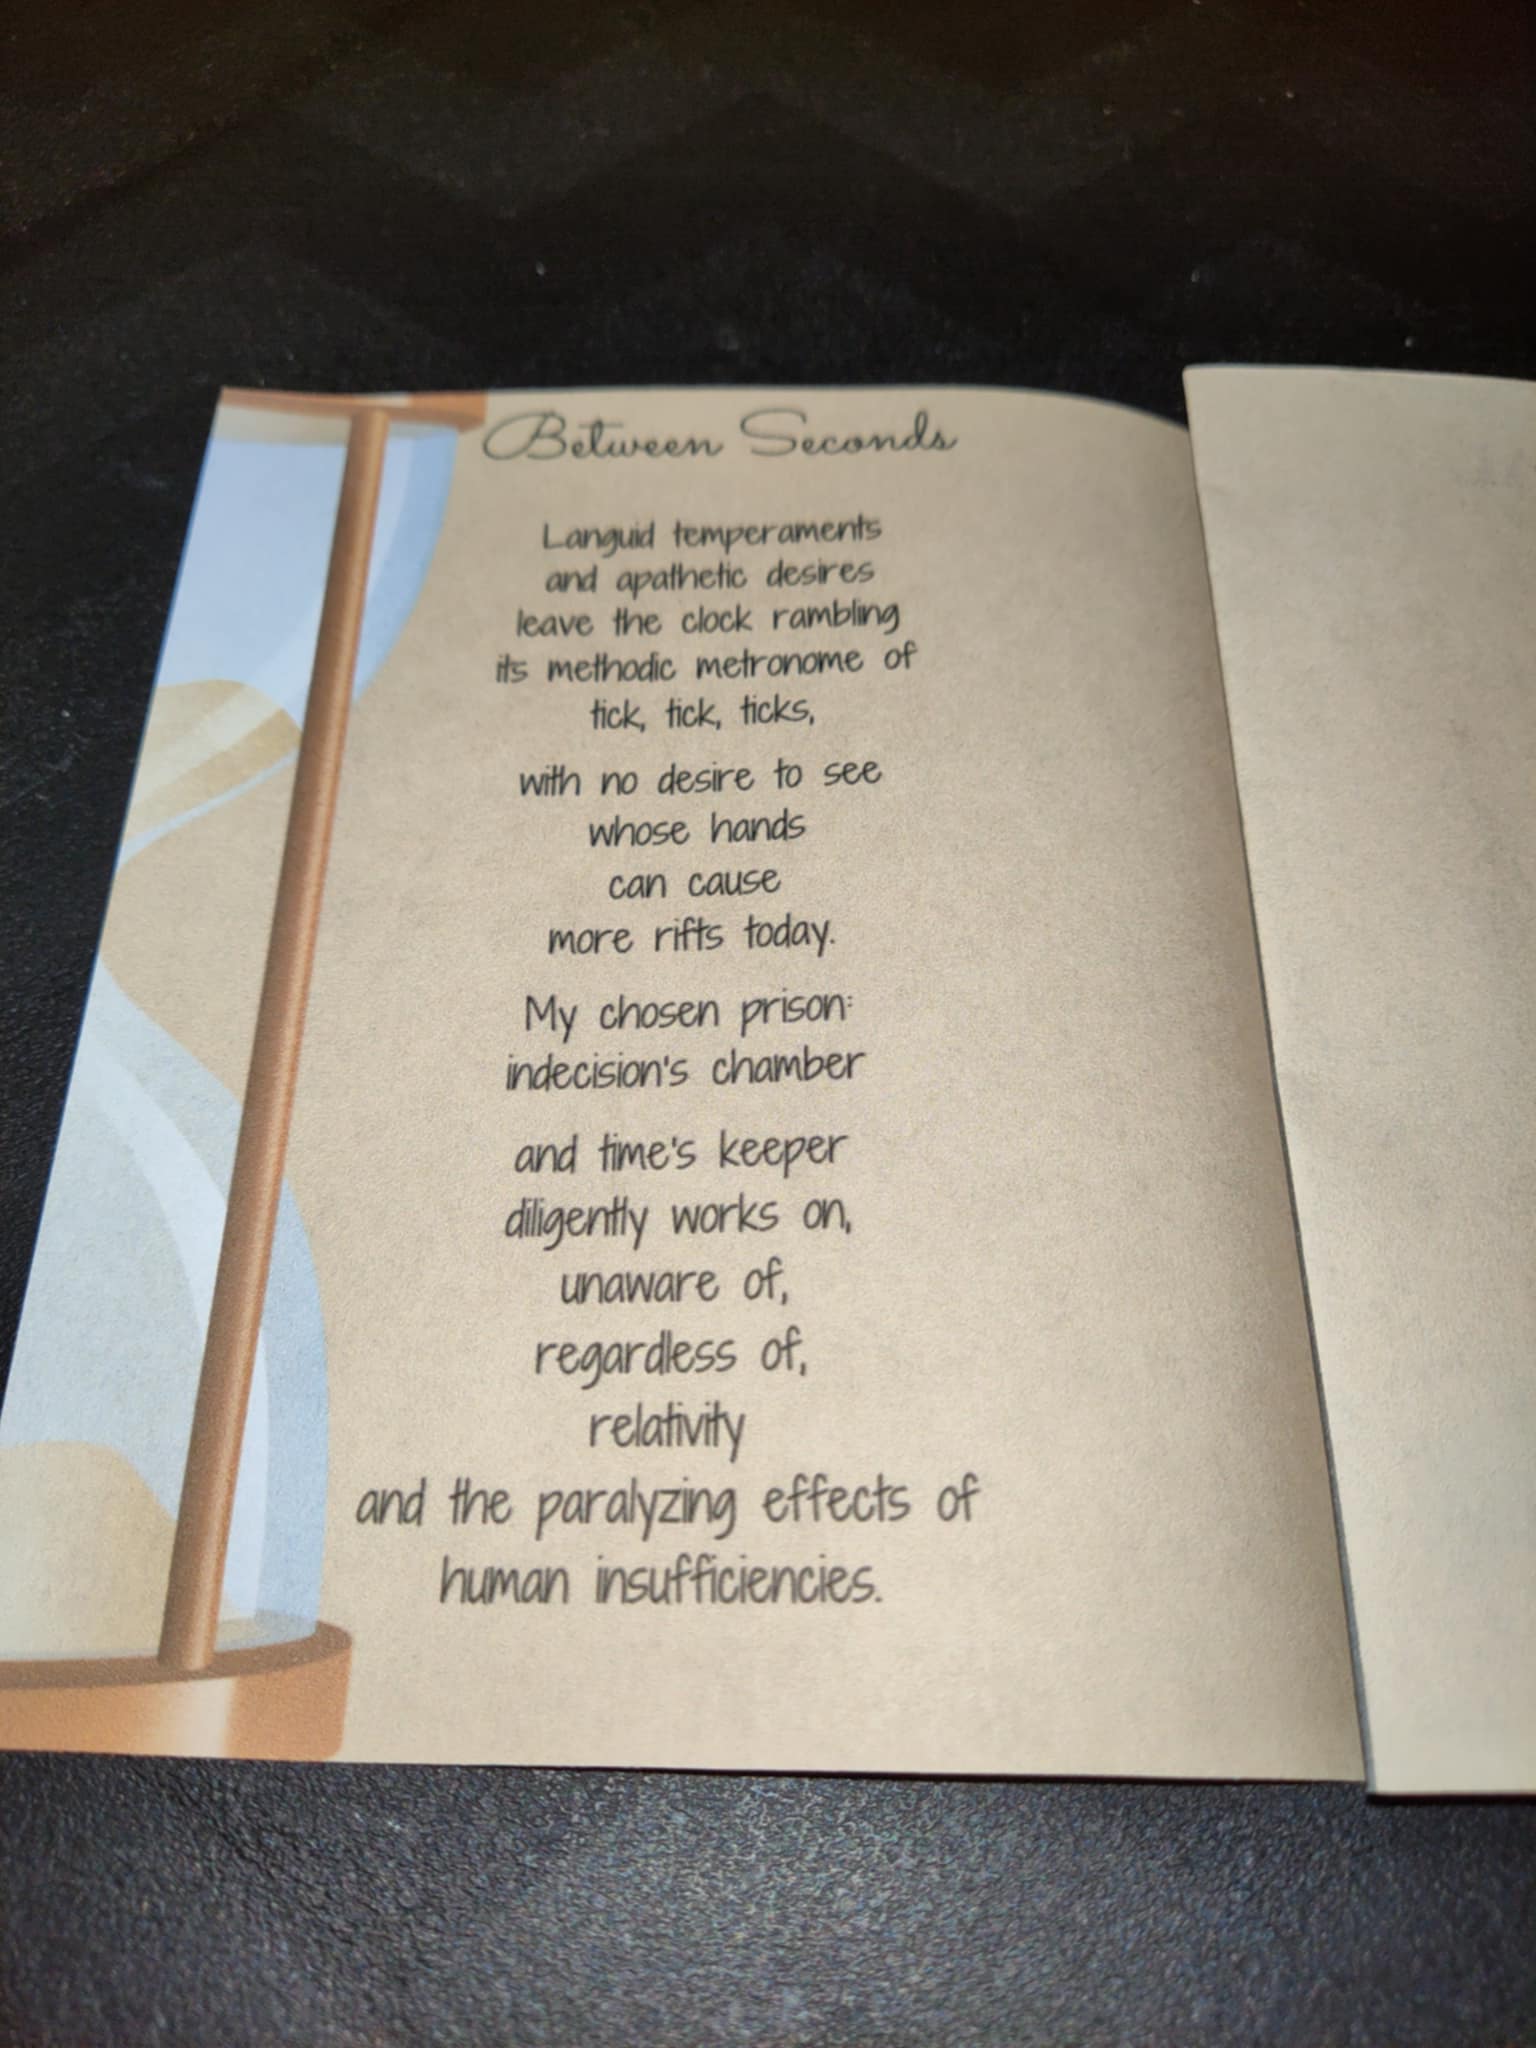 Between Seconds
Languid temperaments
and apathetic desires
leave the clock rambling
its methodic metronome of
tick, tick, ticks,
with no desire to see
whose hands
can cause
more rifts today.
My chosen prison:
indecision's chamber
and time's keeper
diligently works on,
unaware of,
regardless of,
relativity
and the paralyzing effects of
human insufficiencies.